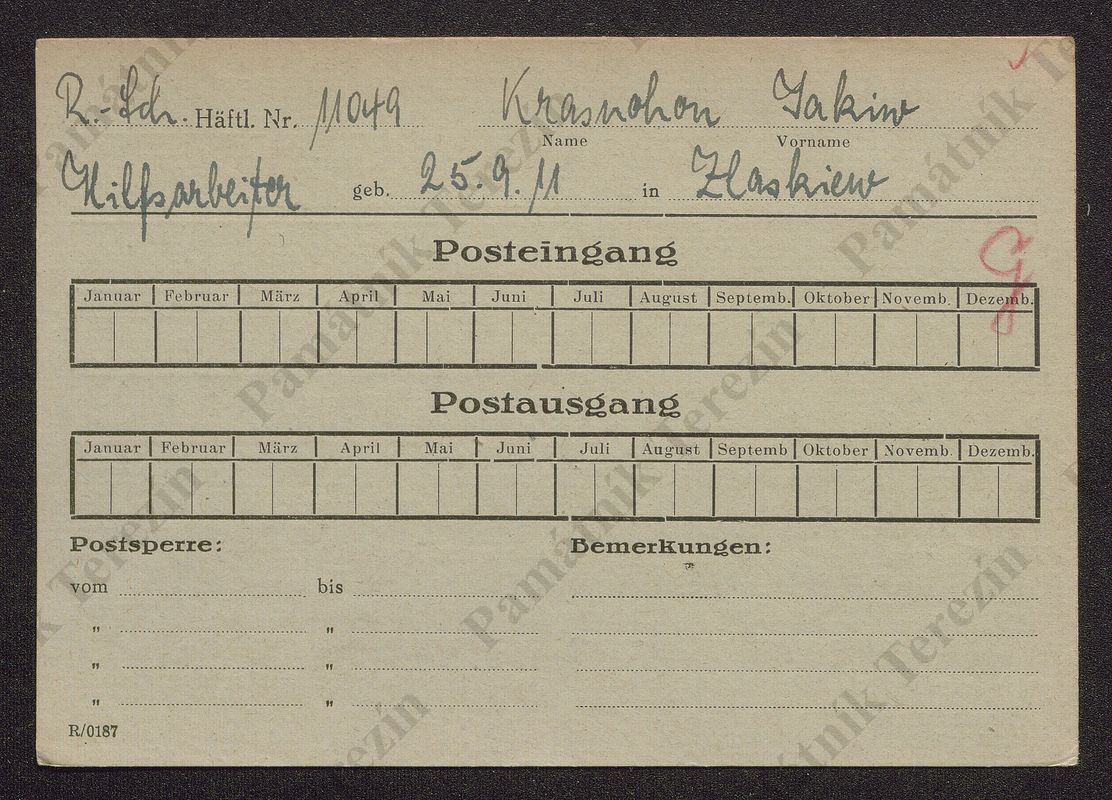 R.-Sch. Häftl. Nr. 11049 Krasnohon Jakiw
Name Vorname
Hilfsarbeiter geb. 25.9.11 in Zlaskiew
G
Posteingang
Januar Februar März April Mai Juni Juli August Septemb. Oktober Novemb. Dezemb.
Postausgang
Januar Februar März April Mai Juni Juli August Septemb Oktober Novemb. Dezemb.
Postsperre: Bemerkungen:
vom bis
" "
" "
" "
R/0187
Památník Terezín